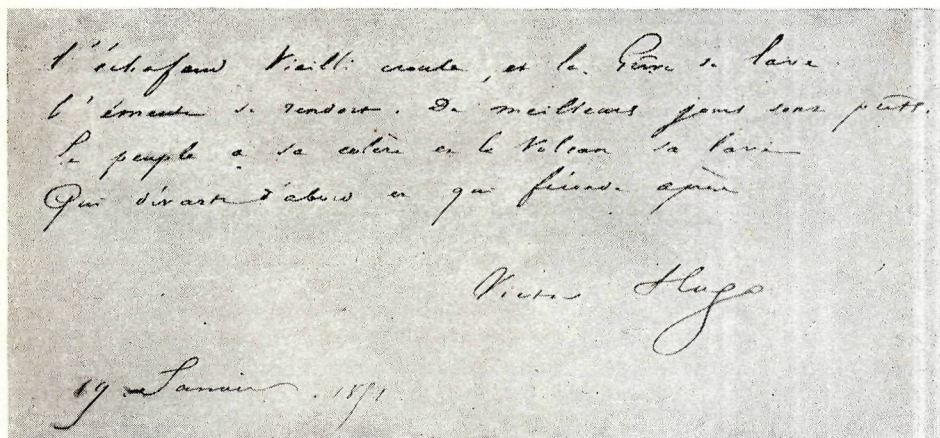 L'échafaud Vieilli croule, et la Grève se lave.
L'émeute se rendort. De meilleurs jours sont prêts.
Le peuple a sa colère et le Volcan sa lave
Qui dévaste d'abord et qui féconde après
Victor Hugo
19 Janvier